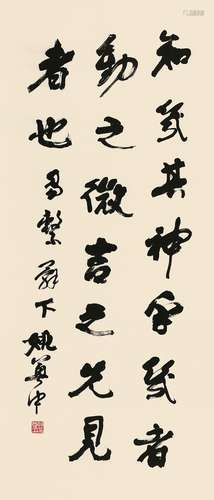 知幾其神乎幾者
動之微吉之先見
者也易繫辭下姚奠中